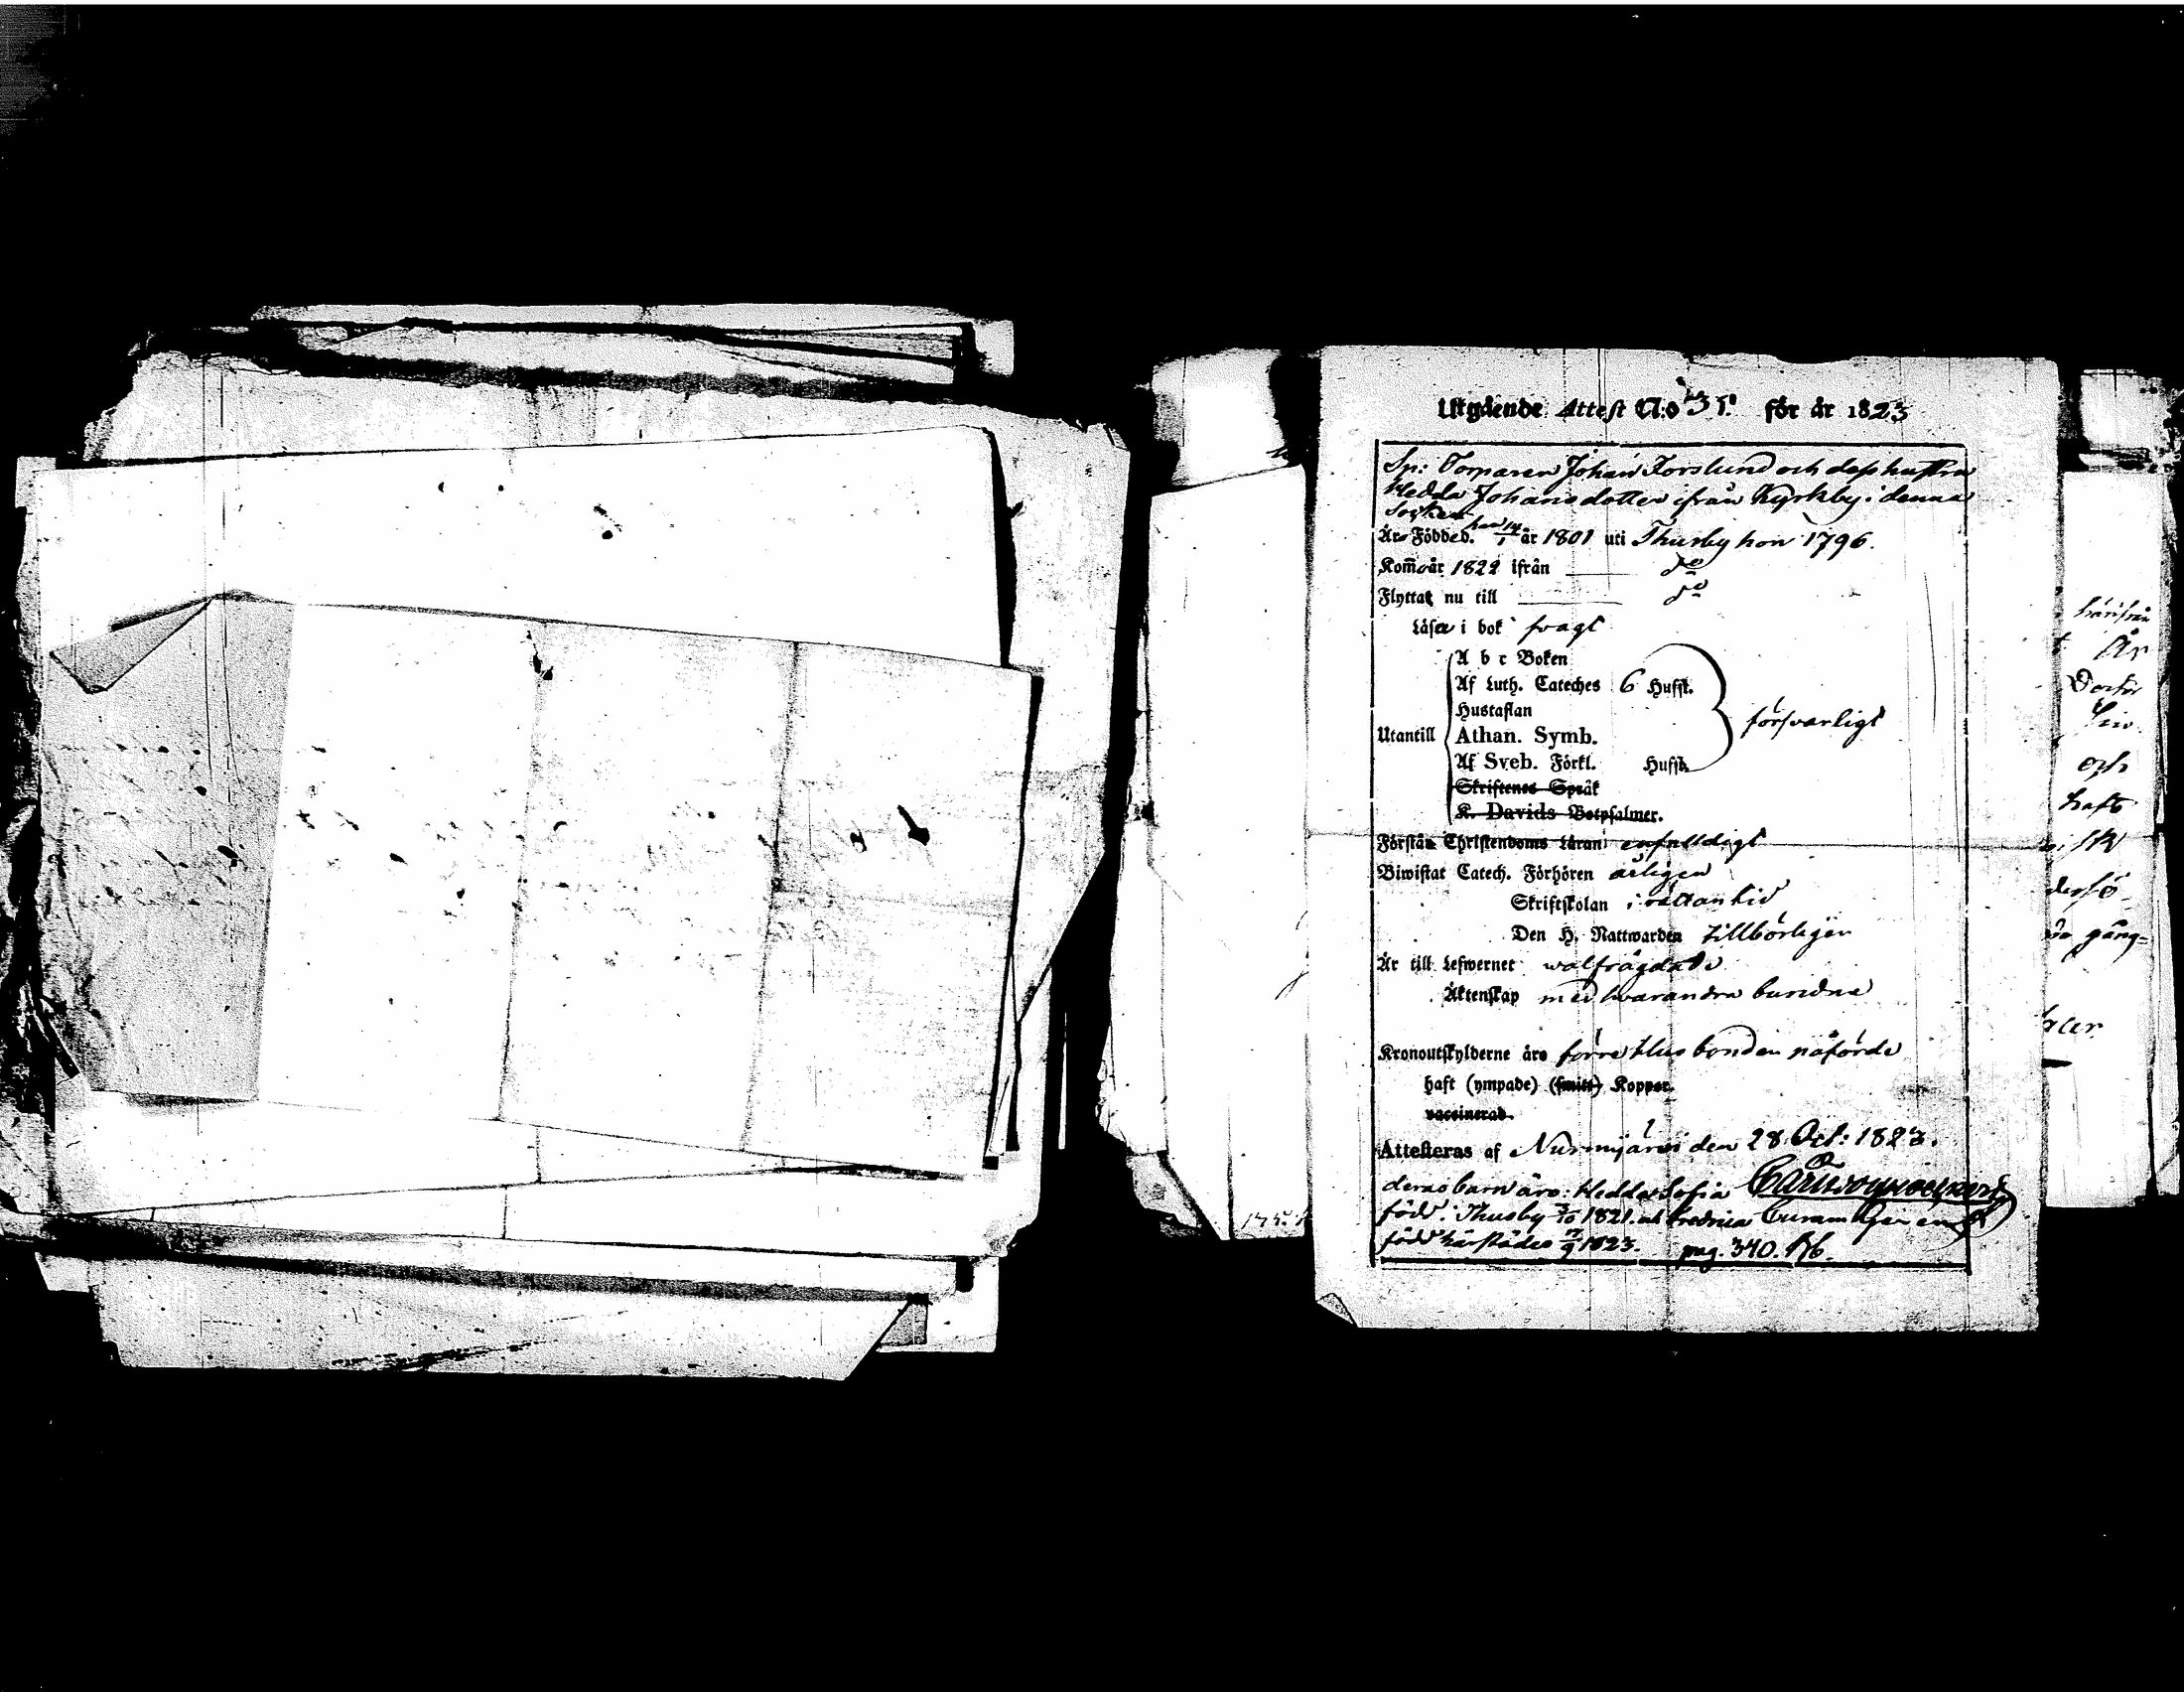 Utgående Attest N:o 35. för år 1823
Sp: Torparen Johan Forslund och dess hustru
Hedda Johansdotter ifrån Kyrkby i denna
Socken
Äro Födde d. han 14/1 år 1801 uti Thusby hon 1796.
Kom̄o år 1822 ifrån d:o
Flyttat nu till d:o
Läsa i bok svagt
A b c Boken
Af Luth. Cateches 6 Hufst.
Hustaflan
Utantill Athan. Symb. försvarligt
Af Sveb. Förkl. Hufst.
Skriftenes Språk
K. Davids Botpsalmer.
Förstå Christendoms Läran enfalldigt
Biwistat Catech. Förhören årligen
Skriftskolan i rättan tid
Den H. Nattwarden tillbörligen
Är till Lefwernet wälfrägdade
Äktenskap med hvarandra bundne
Kronoutskylderne äro förre Husbonden påförde
haft (ympade) (smitt) Koppor.
vaccinerad.
Attesteras af Nurmijärvi den 28 Oct: 1823.
deras barn äro: Hedda Sofia
född i Thusby 3/10 1821. och Fredrica
född härstädes 1823. pag. 340.
härifrån
År
och
haft
gång=